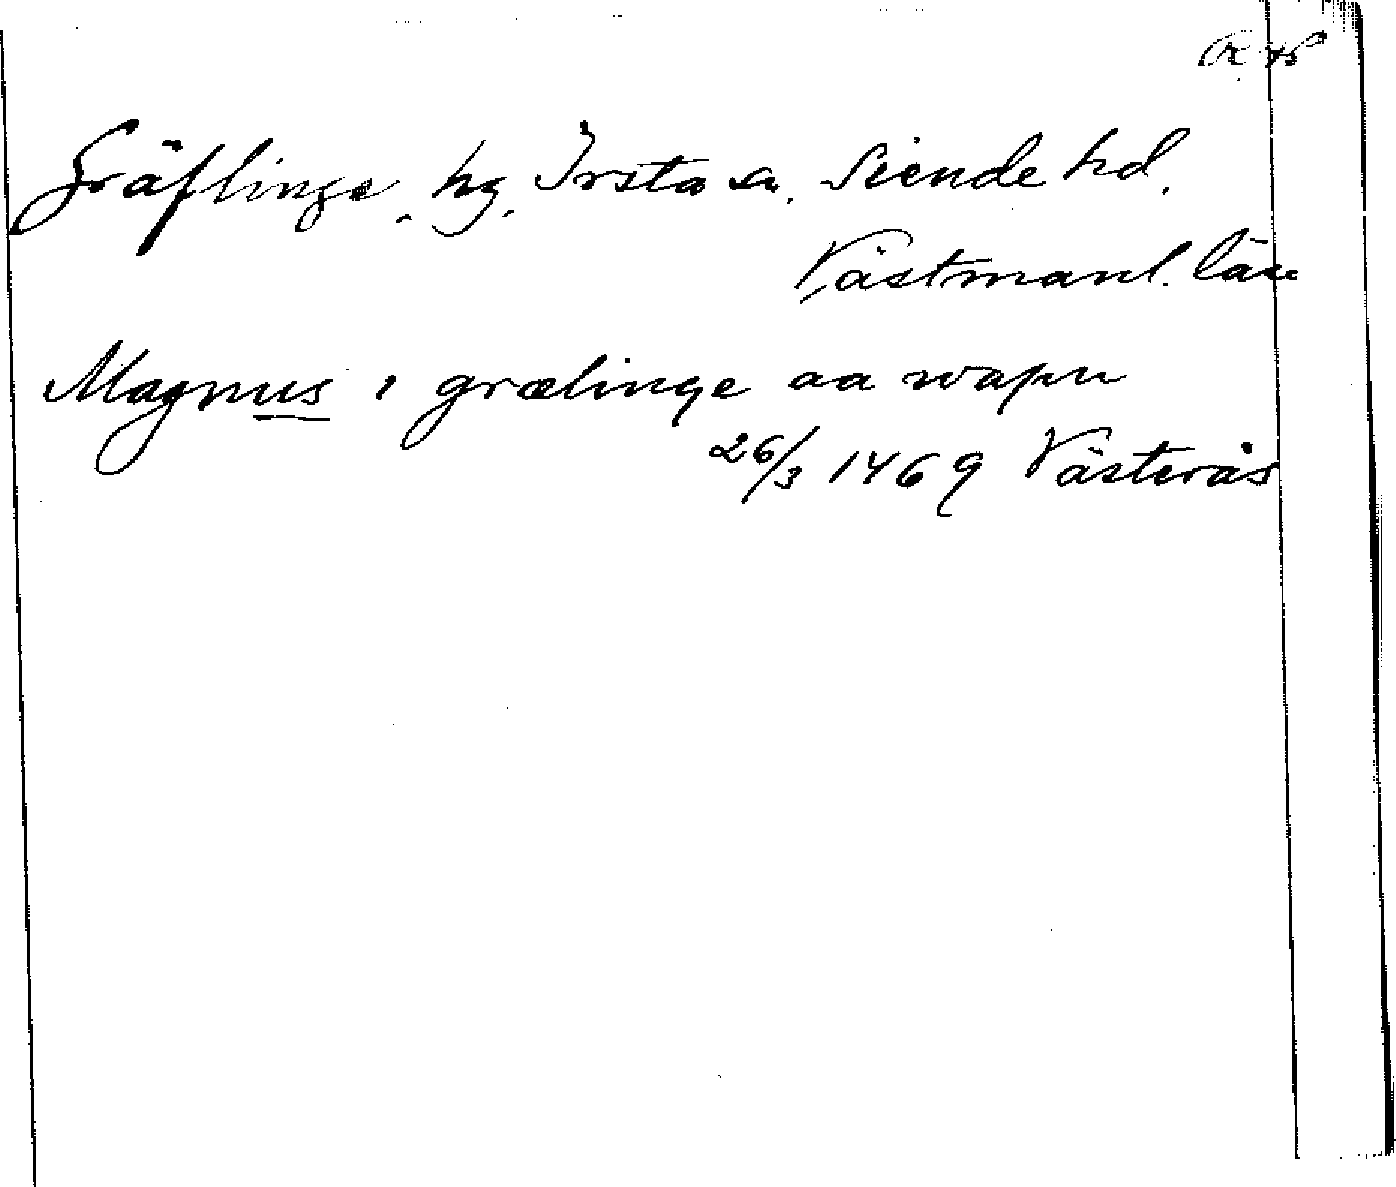 Gräflinge. hg. Irsta sn. Siende hd.
Västmanl. län
Magnus i grælinge aa wapn
26/3 1469 Västerås